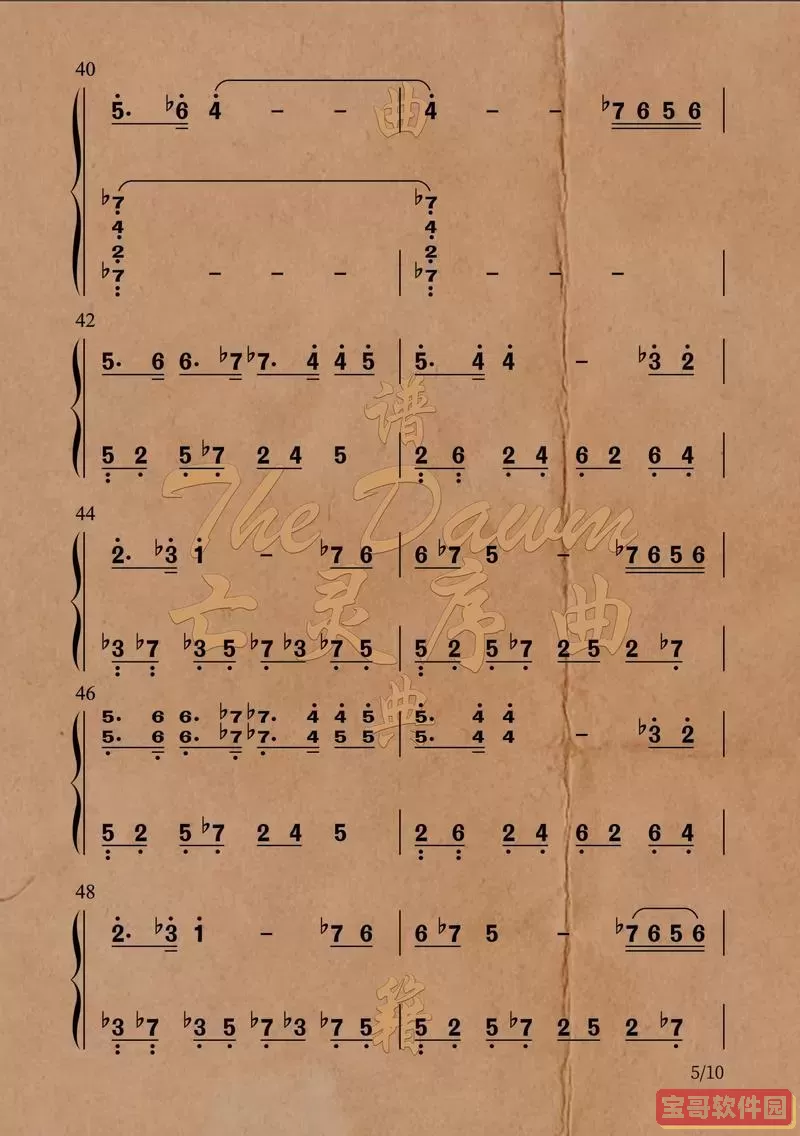 40
5̣̇. ♭6̇ 4̇ – – – 4̇ – – ♭7 6 5 6
♭7 ♭7
4 4
2 2
♭7 – – – ♭7 – – –
42
5. 6 6. ♭7 ♭7. 4̇ 4̇ 5̇ 5̇. 4̇ 4̇ – ♭3̇ 2̇
5 2 5 ♭7 2 4 5 2 6 2 4 6 2 6 4
44
2̇. ♭3̇ 1̇ – ♭7 6 6 ♭7 5 – ♭7 6 5 6
♭3 ♭7 ♭3 5 ♭7 ♭3 ♭7 5 5 2 5 ♭7 2 5 2 ♭7
46
5. 6 6. ♭7 ♭7. 4̇ 4̇ 5̇ 5̇. 4̇ 4̇
5. 6 6. ♭7 ♭7. 4 5 5 5. 4 4 – ♭3̇ 2̇
5 2 5 ♭7 2 4 5 2 6 2 4 6 2 6 4
48
2̇. ♭3̇ 1̇ – ♭7 6 6 ♭7 5 – ♭7 6 5 6
♭3 ♭7 ♭3 5 ♭7 ♭3 ♭7 5 5 2 5 ♭7 2 5 2 ♭7
曲
谱
The Dawn
亡灵序曲
典
籍
5/10
宝哥软件园